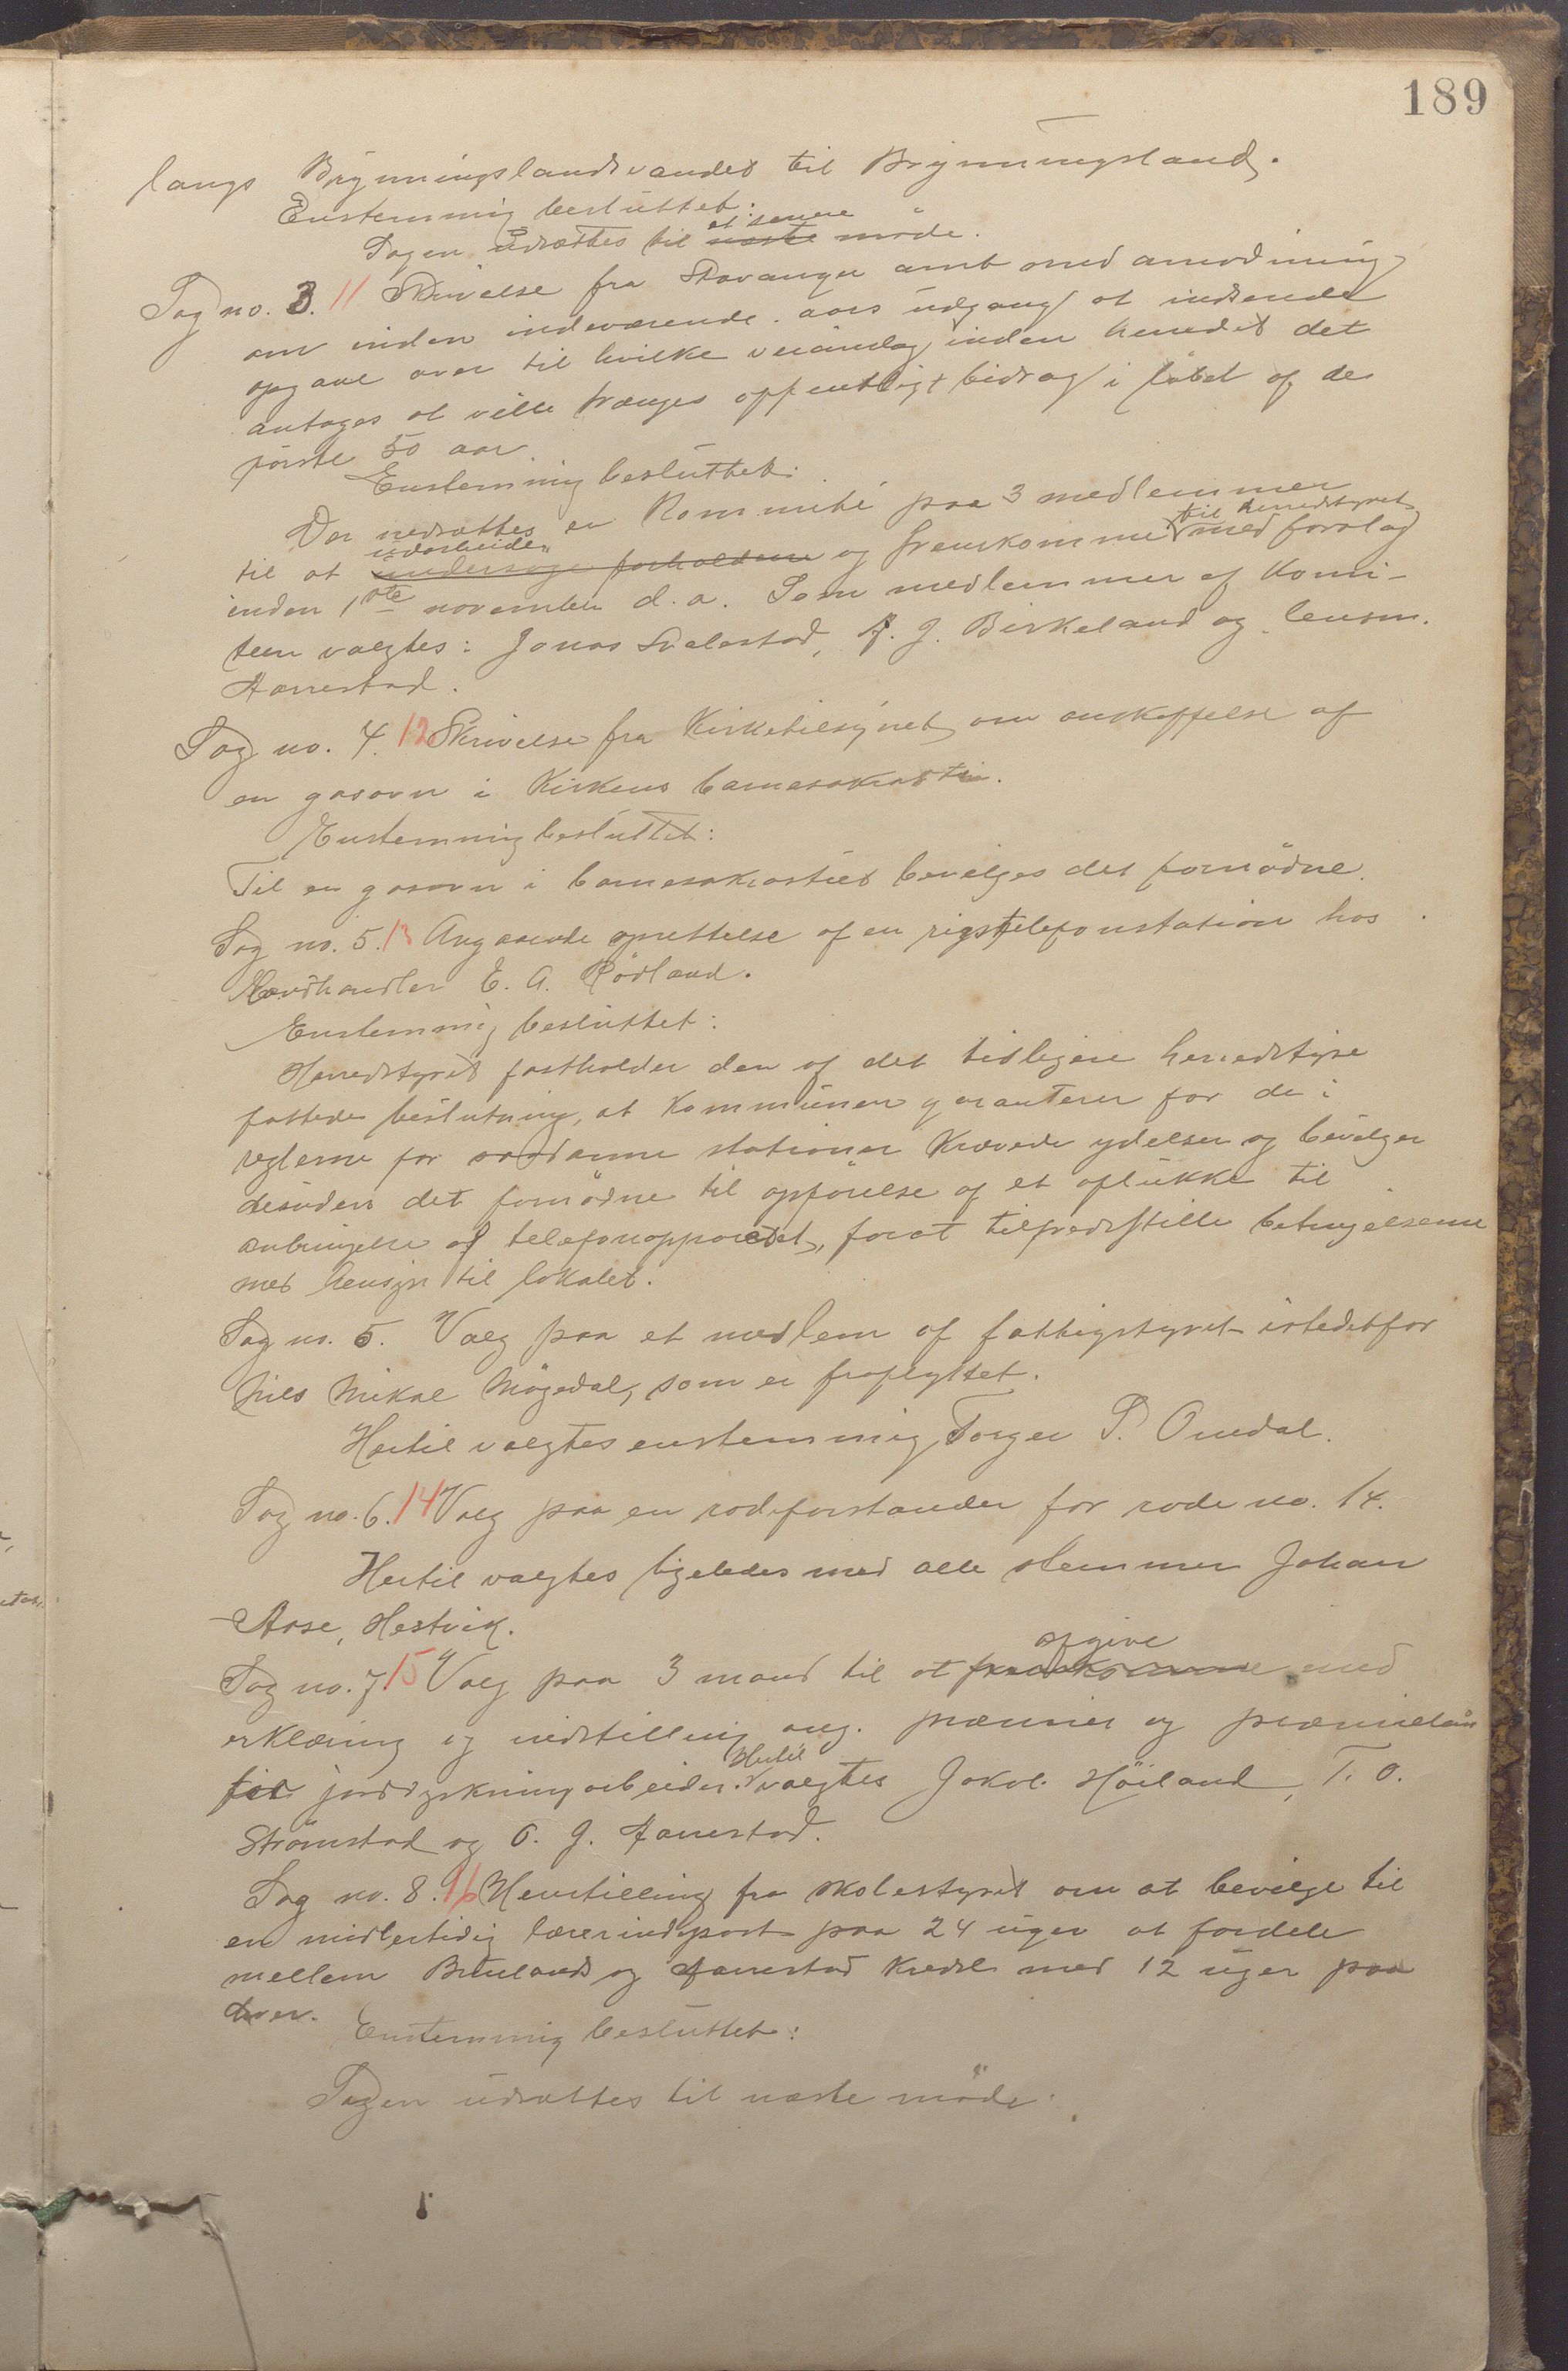 189
langs Brynningslandsvandet til Brynningsland.
Enstemmig besluttet:
Sagen udsættes til et senere næste möde.
Sag no. 3. 11 Skrivelse fra Stavanger amt med anmodning
om inden indeværende aars udgang at indsende
opgave over til hvilke veianlæg inden herredet det
antages at ville trænges offentligt bidrag i löbet af de
förste 50 aar.
Enstemmig besluttet:
Der nedsættes en Kommité paa 3 medlemmer
til at udarbeide undersöge forholdene og fremkomme til herredstyret med forslag
inden 1ste november d.a. Som medlemmer af Komi-
teen valgtes: Jonas Svalestad, A. J. Birkeland og lensm.
Aarrestad.
Sag no. 4. 12 Skrivelse fra Kirketilsynet om anskaffelse af
en gasovn i Kirkens barnesakristi.
Enstemmig besluttet:
Til en gasovn i barnesakristiet bevilges det fornödne.
Sag no. 5. 13 Angaaende oprettelse af en rigstelefonstation hos
Landhandler E. A. Rödland.
Enstemmig besluttet:
Herredstyret fastholder den af det tidligere herredstyre
fattede beslutning, at Kommunen garanterer for de i
reglerne for saadanne stationer Krævede ydelser og bevilger
desuden det fornödne til opförelse af et aflukke til
anbringelse af telefonapparatet, forat tilfredsstille betingelserne
med hensyn til lokalet.
Sag no. 5. Valg paa et medlem af fattigstyret istedetfor
Nils Mikal Mögedal, som er fraflyttet.
Hertil valgtes enstemmig Torger P. Omdal.
Sag no. 6. 14 Valg paa en rodeforstander for rode no. 14.
Hertil valgtes ligeledes med alle stemmer Johan
Aase, Hestvik.
Sag no. 7. 15 Valg paa 3 mand til at afgive fremkomme med
erklæring og indstilling ang. præmier og præmielån
for jorddyrkningarbeider. Hertil valgtes Jakob Höiland, T. O.
Strömstad og O. J. Aarrestad.
Sag no. 8. 16 Henstilling fra skolestyret om at bevilge til
en midlertidig lærerindepost paa 24 uger at fordele
mellem Brueland og Aarrestad Kreds med 12 uger paa
hver.
Enstemmig besluttet:
Sagen udsættes til næste möde.